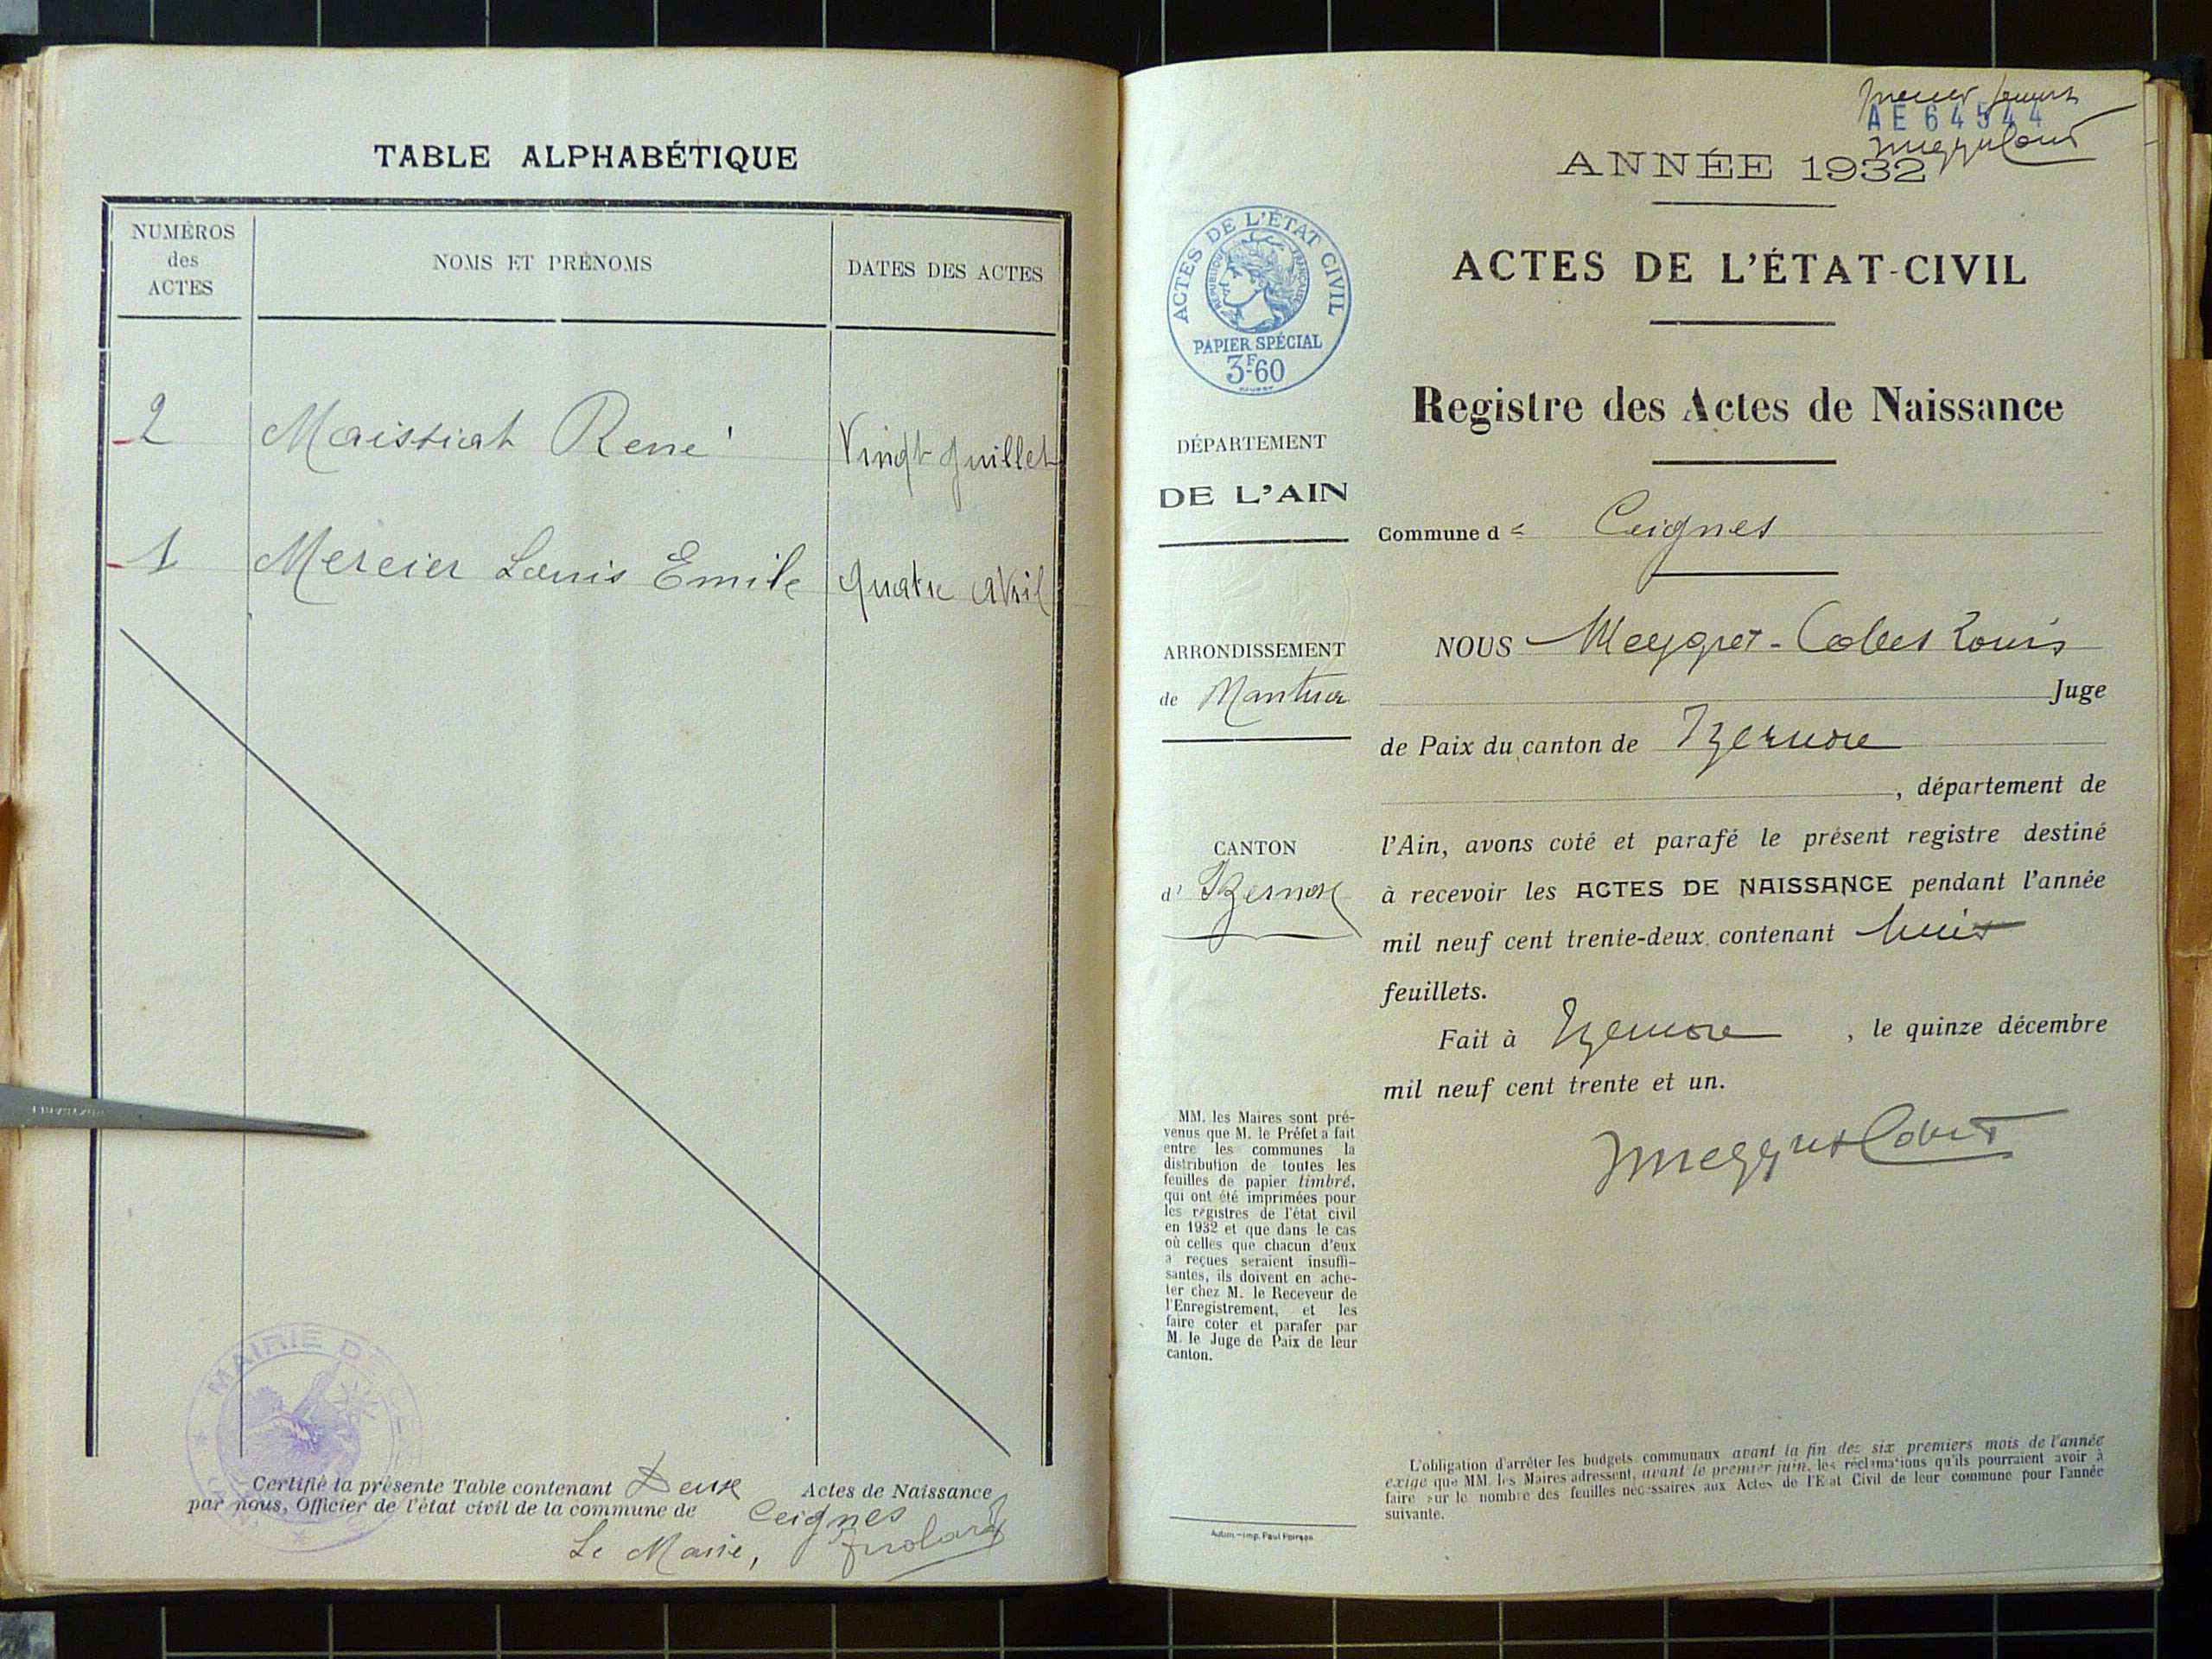 TABLE ALPHABÉTIQUE
NUMÉROS
des
ACTES
NOMS ET PRÉNOMS
DATES DES ACTES
2 Maissiat René Vingt Juillet
1 Mercier Louis Emile Quatre avril
MAIRIE DE
Certifié la présente Table contenant Deux Actes de Naissance
par nous, Officier de l'état civil de la commune de Ceignes
Le Maire,
AE 64544
ANNÉE 1932
ACTES DE L'ÉTAT CIVIL
RÉPUBLIQUE FRANÇAISE
PAPIER SPÉCIAL
3F.60
ACTES DE L'ÉTAT-CIVIL
Registre des Actes de Naissance
DÉPARTEMENT
DE L'AIN
Commune de Ceignes
ARRONDISSEMENT
de Nantua
NOUS Meygret-Collet Louis
Juge
de Paix du canton de Izernore
, département de
CANTON
d' Izernore
l'Ain, avons coté et parafé le présent registre destiné
à recevoir les ACTES DE NAISSANCE pendant l'année
mil neuf cent trente-deux, contenant huit
feuillets.
Fait à Izernore , le quinze décembre
mil neuf cent trente et un.
MM. les Maires sont pré-
venus que M. le Préfet a fait
entre les communes la
distribution de toutes les
feuilles de papier timbré,
qui ont été imprimées pour
les registres de l'état civil
en 1932 et que dans le cas
où celles que chacun d'eux
a reçues seraient insuffi-
santes, ils doivent en ache-
ter chez M. le Receveur de
l'Enregistrement, et les
faire coter et parafer par
M. le Juge de Paix de leur
canton.
L'obligation d'arrêter les budgets communaux avant la fin des six premiers mois de l'année
exige que MM. les Maires adressent, avant le premier juin, les réclamations qu'ils pourraient avoir à
faire sur le nombre des feuilles nécessaires aux Actes de l'Etat Civil de leur commune pour l'année
suivante.
Autun.—Imp. Paul Poirson